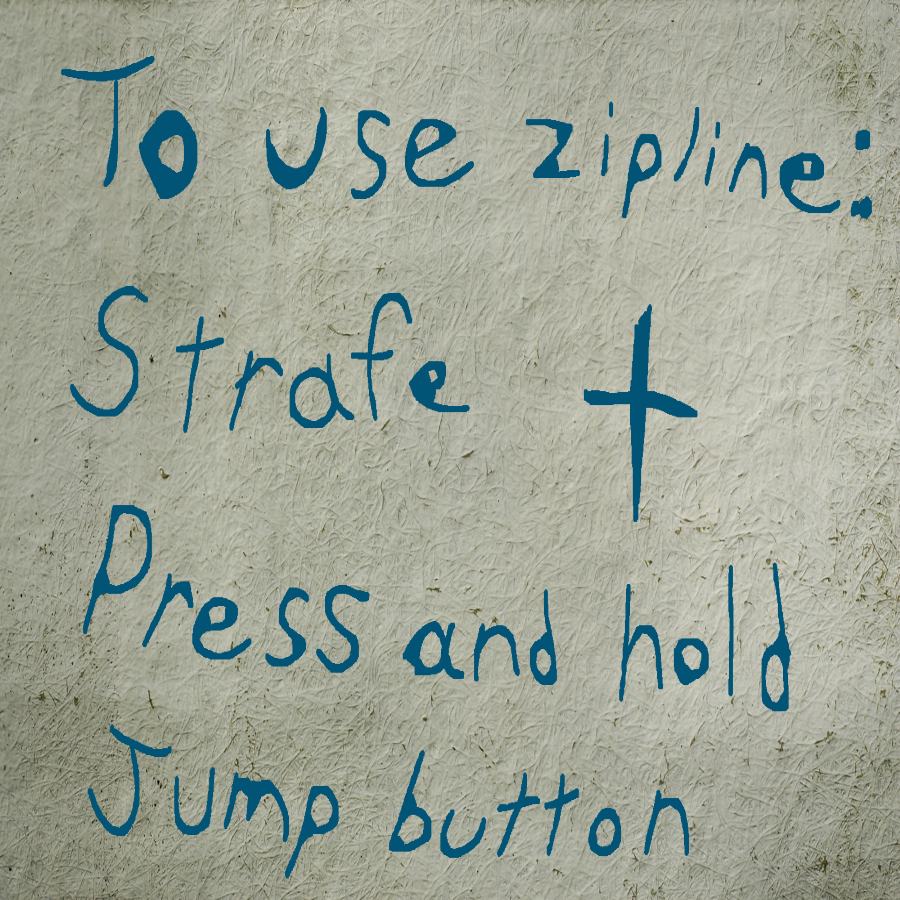 To use zipline:
Strafe +
Press and hold
Jump button